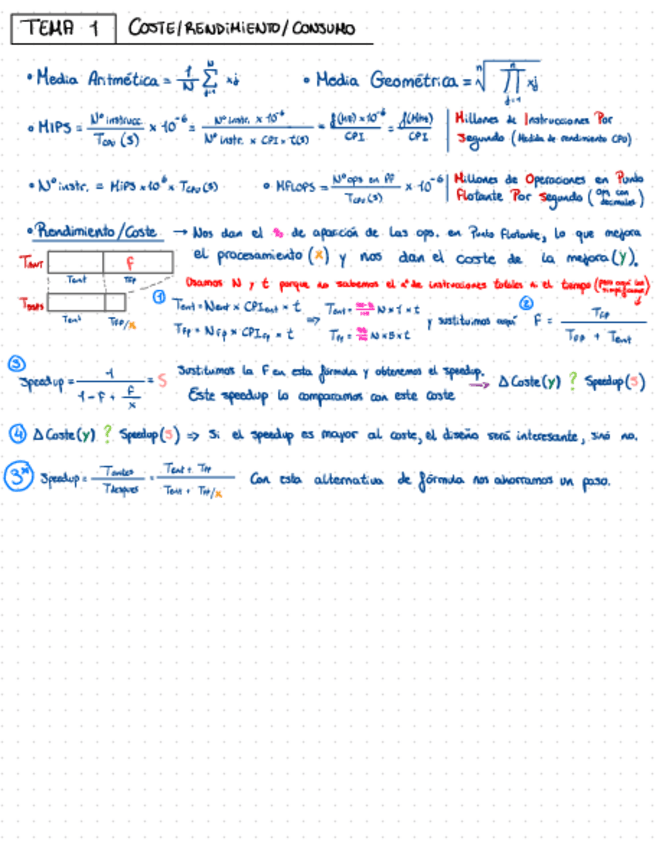 TEMA 1 COSTE/RENDIMIENTO/CONSUMO
• Media Aritmética = 1/N ∑ xj • Media Geométrica = ⁿ√∏ xj
N j=1 n j=1
• MIPS = Nº instrucc. / TCPU (s) x 10⁻⁶ = Nº instr. x 10⁻⁶ / Nº instr. x CPI x t(s) = f(Hz) x 10⁻⁶ / CPI = f(MHz) / CPI | Millones de Instrucciones Por
Segundo (Medida de rendimiento CPU)
• Nº instr. = MIPS x 10⁶ x TCPU (s) • MFLOPS = Nº ops en PF / TCPU (s) x 10⁻⁶ | Millones de Operaciones en Punto
Flotante Por Segundo (ops con decimales)
• Rendimiento/Coste → Nos dan el % de aparición de las ops. en Punto Flotante, lo que mejora
el procesamiento (x) y nos dan el coste de la mejora (y).
TANT F
Tent TFP
Usamos N y t porque no sabemos el nº de instrucciones totales ni el tiempo (pero aquí las simplificamos)
TDESPS
Tent TFP/x
① Tent = Nent x CPIent x t ⇒ Tent = N x 1 x t
TFP = NFP x CPIFP x t TFP = N x 5 x t
y sustituimos aquí ② F = TFP / TFP + Tent
③ Speedup = 1 / 1 - F + F/x = S Sustituimos la F en esta fórmula y obtenemos el speedup.
Este speedup lo comparamos con este coste → Δ Coste (y) ? Speedup (S)
④ Δ Coste (y) ? Speedup (S) ⇒ Si el speedup es mayor al coste, el diseño será interesante, sinó no.
③* Speedup = Tantes / Tdespues = Tent + TFP / Tent + TFP/x Con esta alternativa de fórmula nos ahorramos un paso.